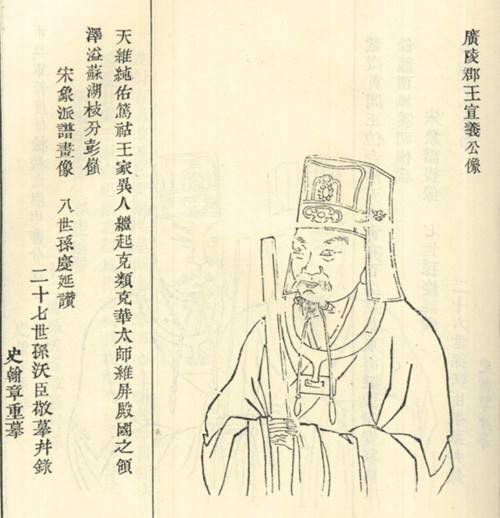 廣陵郡王宣義公像
天維純佑篤祜王家異人繼起克類克華太師維屏殿國之領
澤溢蘇湖枝分彭嶺
宋象派譜畫像　八世孫慶延讚
二十七世孫沃臣敬摹幷錄
史翰章重摹